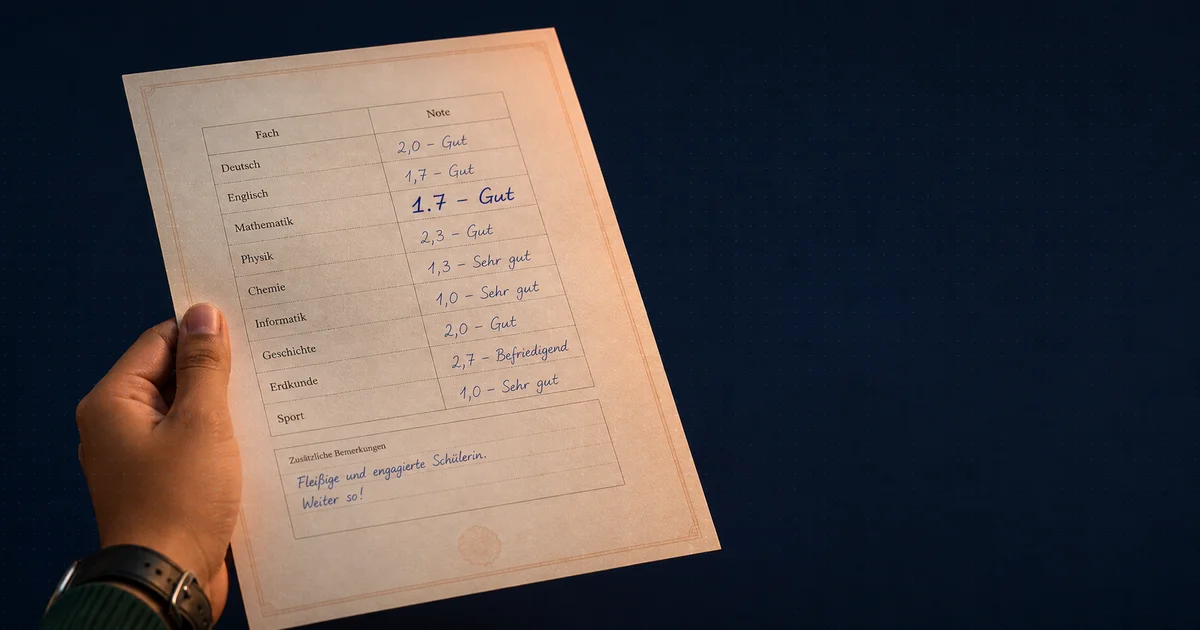 Fach Note
Deutsch 2,0 – Gut
Englisch 1,7 – Gut
Mathematik 1.7 – Gut
Physik 2,3 – Gut
Chemie 1,3 – Sehr gut
Informatik 1,0 – Sehr gut
Geschichte 2,0 – Gut
Erdkunde 2,7 – Befriedigend
Sport 1,0 – Sehr gut
Zusätzliche Bemerkungen
Fleißige und engagierte Schülerin.
Weiter so!